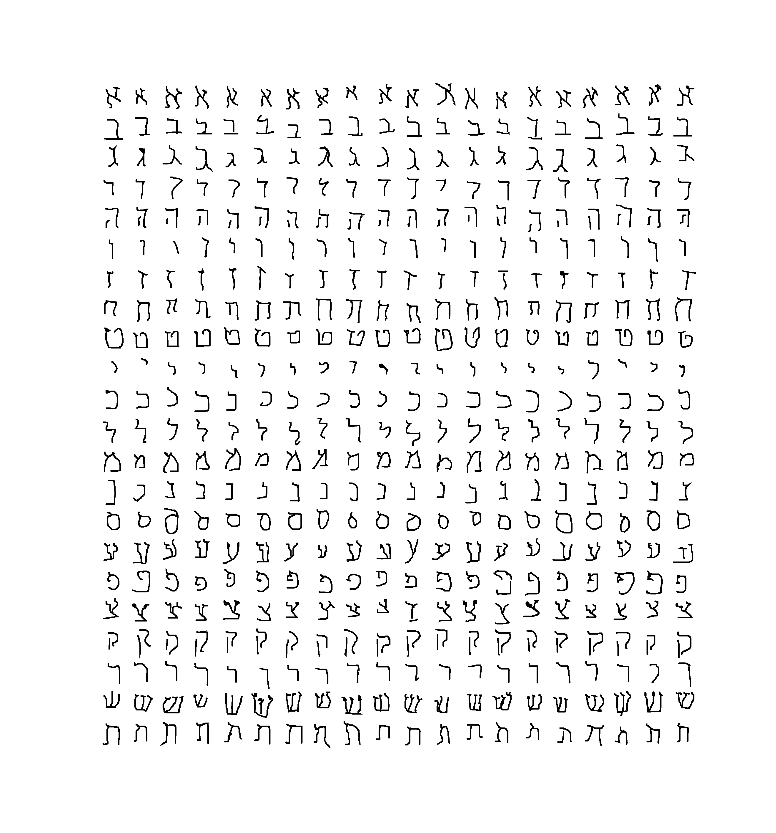 א א א א א א א א א א א א א א א א א א א א
ב ב ב ב ב ב ב ב ב ב ב ב ב ב ב ב ב ב ב ב
ג ג ג ג ג ג ג ג ג ג ג ג ג ג ג ג ג ג ג ג
ד ד ד ד ד ד ד ד ד ד ד ד ד ד ד ד ד ד ד ד
ה ה ה ה ה ה ה ה ה ה ה ה ה ה ה ה ה ה ה ה
ו ו ו ו ו ו ו ו ו ו ו ו ו ו ו ו ו ו ו ו
ז ז ז ז ז ז ז ז ז ז ז ז ז ז ז ז ז ז ז ז
ח ח ח ח ח ח ח ח ח ח ח ח ח ח ח ח ח ח ח ח
ט ט ט ט ט ט ט ט ט ט ט ט ט ט ט ט ט ט ט ט
י י י י י י י י י י י י י י י י י י י י
כ כ כ כ כ כ כ כ כ כ כ כ כ כ כ כ כ כ כ כ
ל ל ל ל ל ל ל ל ל ל ל ל ל ל ל ל ל ל ל ל
מ מ מ מ מ מ מ מ מ מ מ מ מ מ מ מ מ מ מ מ
נ נ נ נ נ נ נ נ נ נ נ נ נ נ נ נ נ נ נ נ
ס ס ס ס ס ס ס ס ס ס ס ס ס ס ס ס ס ס ס ס
ע ע ע ע ע ע ע ע ע ע ע ע ע ע ע ע ע ע ע ע
פ פ פ פ פ פ פ פ פ פ פ פ פ פ פ פ פ פ פ פ
צ צ צ צ צ צ צ צ צ צ צ צ צ צ צ צ צ צ צ צ
ק ק ק ק ק ק ק ק ק ק ק ק ק ק ק ק ק ק ק ק
ר ר ר ר ר ר ר ר ר ר ר ר ר ר ר ר ר ר ר ר
ש ש ש ש ש ש ש ש ש ש ש ש ש ש ש ש ש ש ש ש
ת ת ת ת ת ת ת ת ת ת ת ת ת ת ת ת ת ת ת ת